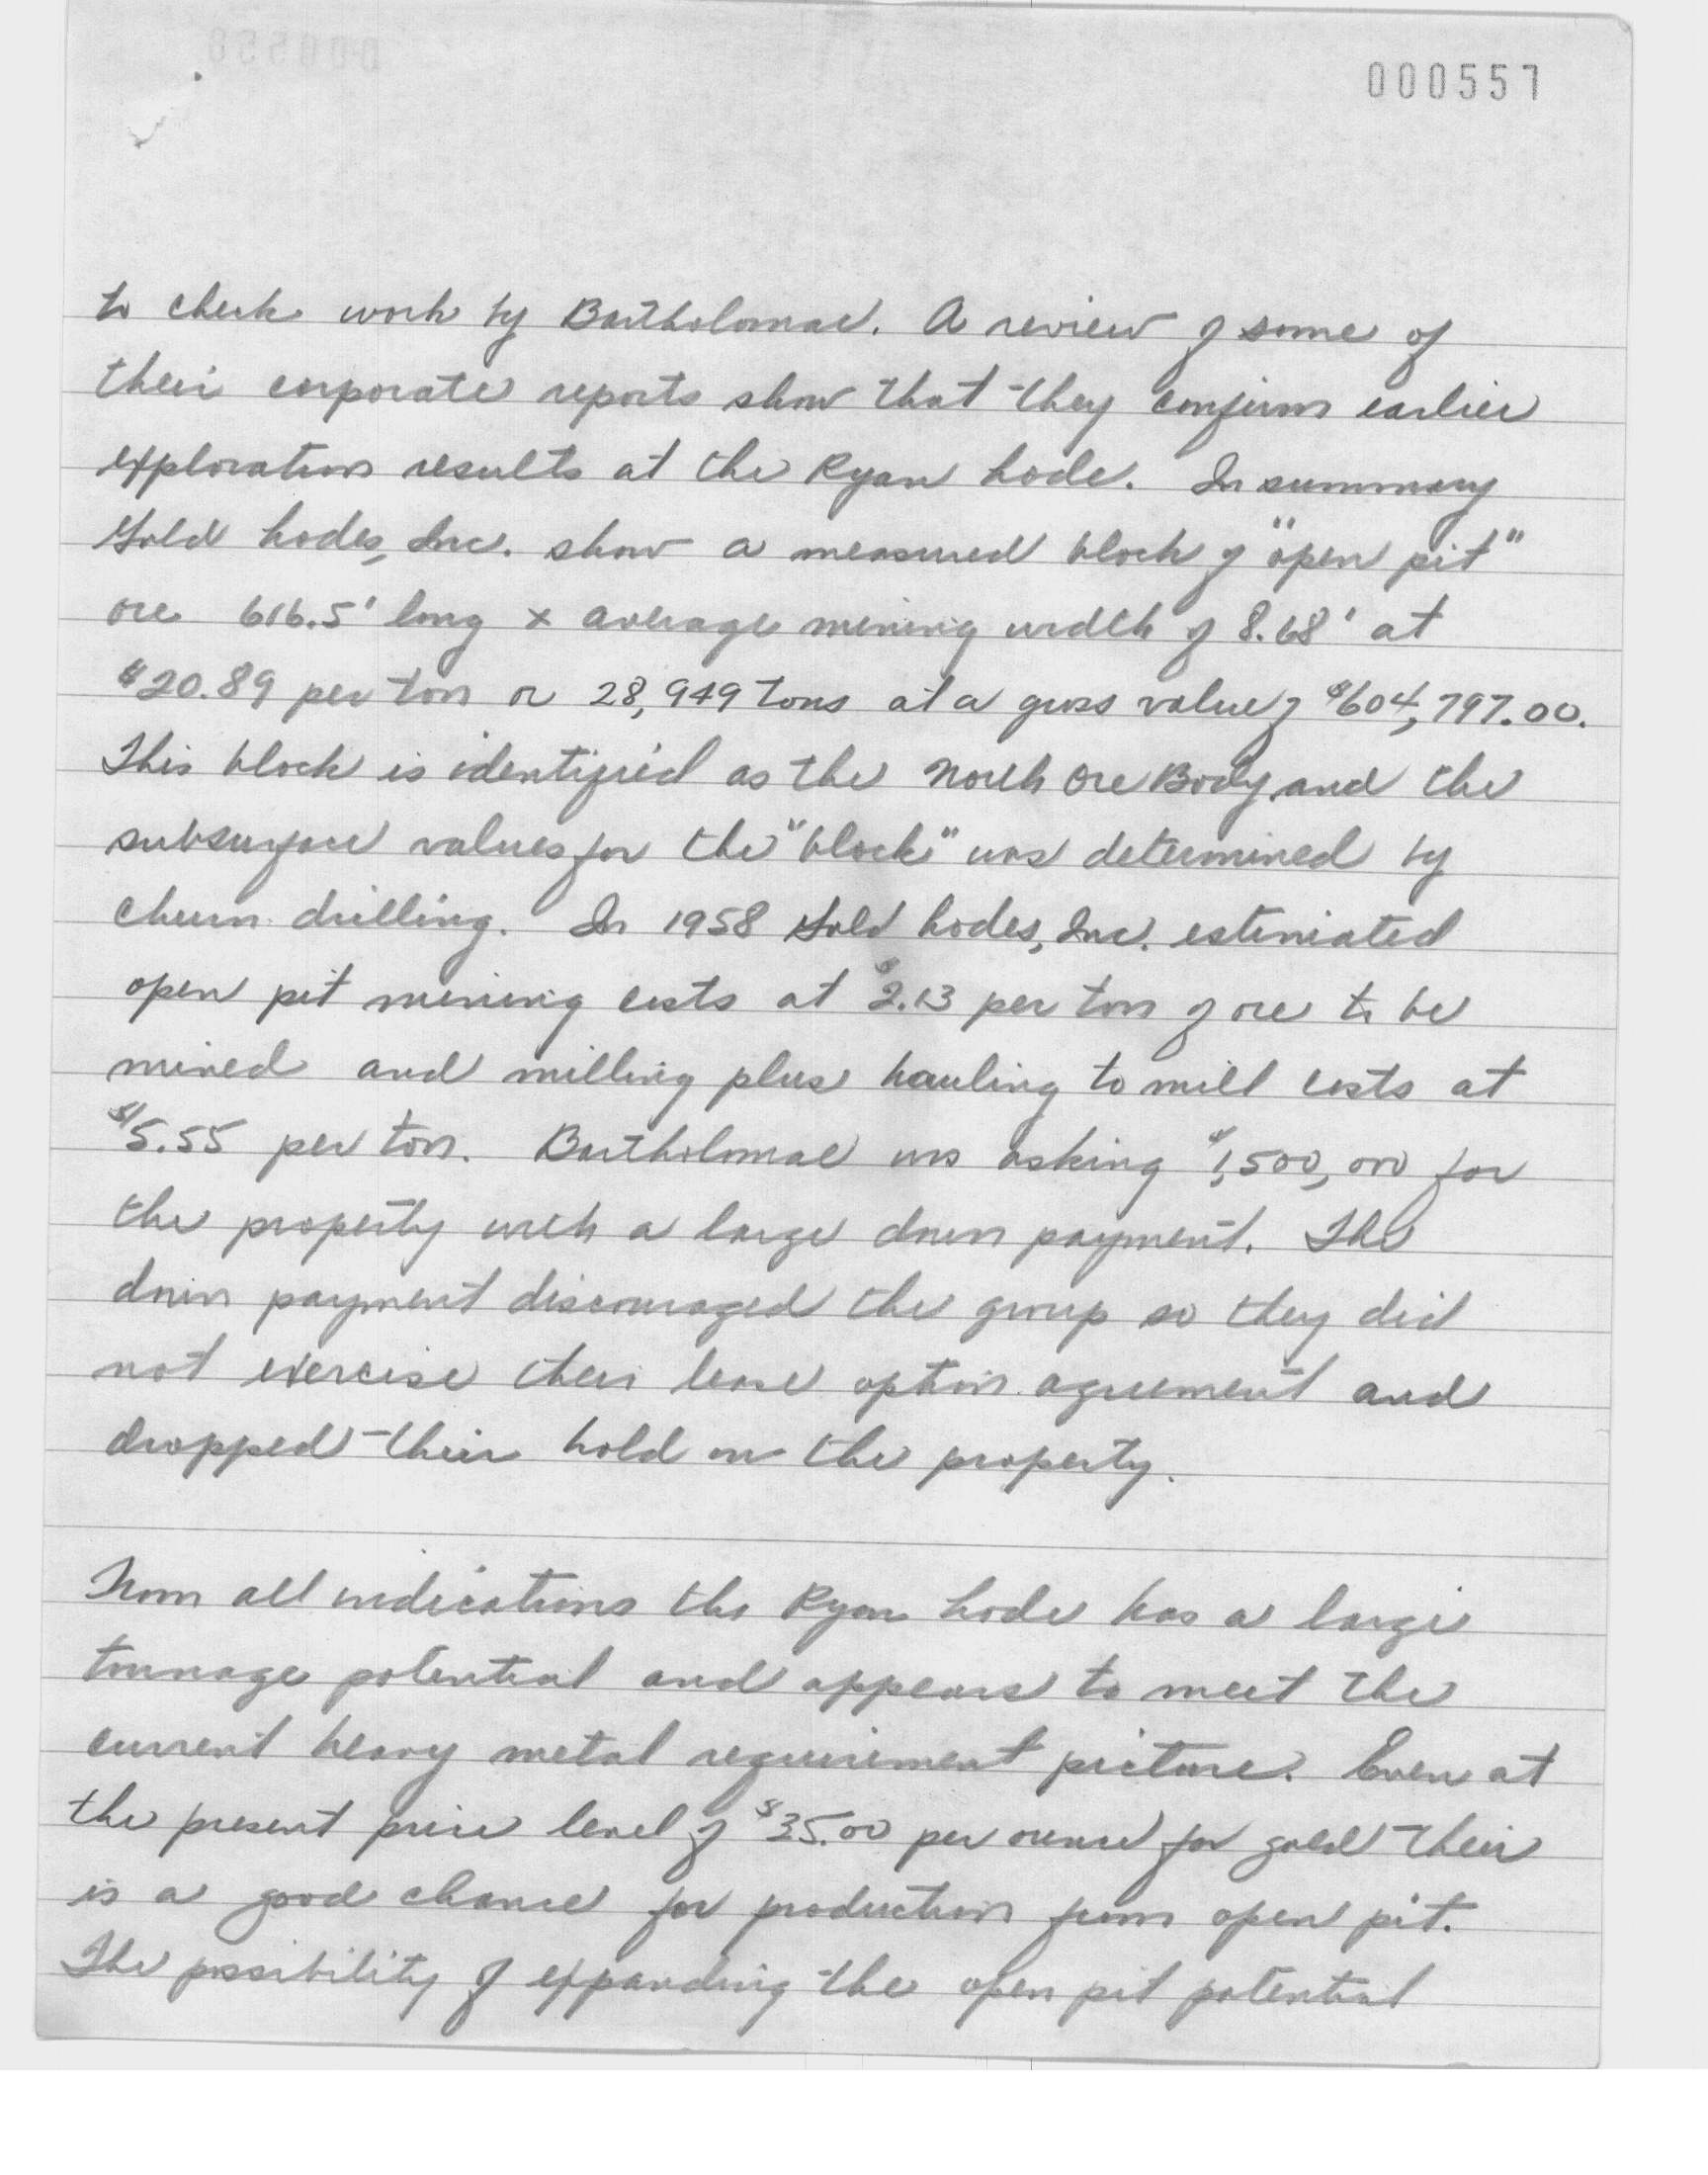 000557
to check work by Bartholomae. A review of some of
their corporate reports show that they confirm earlier
exploration results at the Ryan Lode. In summary
Gold Lodes, Inc. show a measured block of "open pit"
ore 616.5' long x average mining width of 8.68' at
$20.89 per ton or 28,949 tons at a gross value of $604,797.00.
This block is identified as the North Ore Body and the
subsurface values for the "block" was determined by
churn drilling. In 1958 Gold Lodes, Inc. estimated
open pit mining costs at $2.13 per ton of ore to be
mined and milling plus hauling to mill costs at
$5.55 per ton. Bartholomae was asking $1,500,000 for
the property with a large down payment. The
down payment discouraged the group so they did
not exercise their lease option agreement and
dropped their hold on the property.
From all indications the Ryan Lode has a large
tonnage potential and appears to meet the
current heavy metal requirement picture. Even at
the present price level of $35.00 per ounce for gold their
is a good chance for production from open pit.
The possibility of expanding the open pit potential